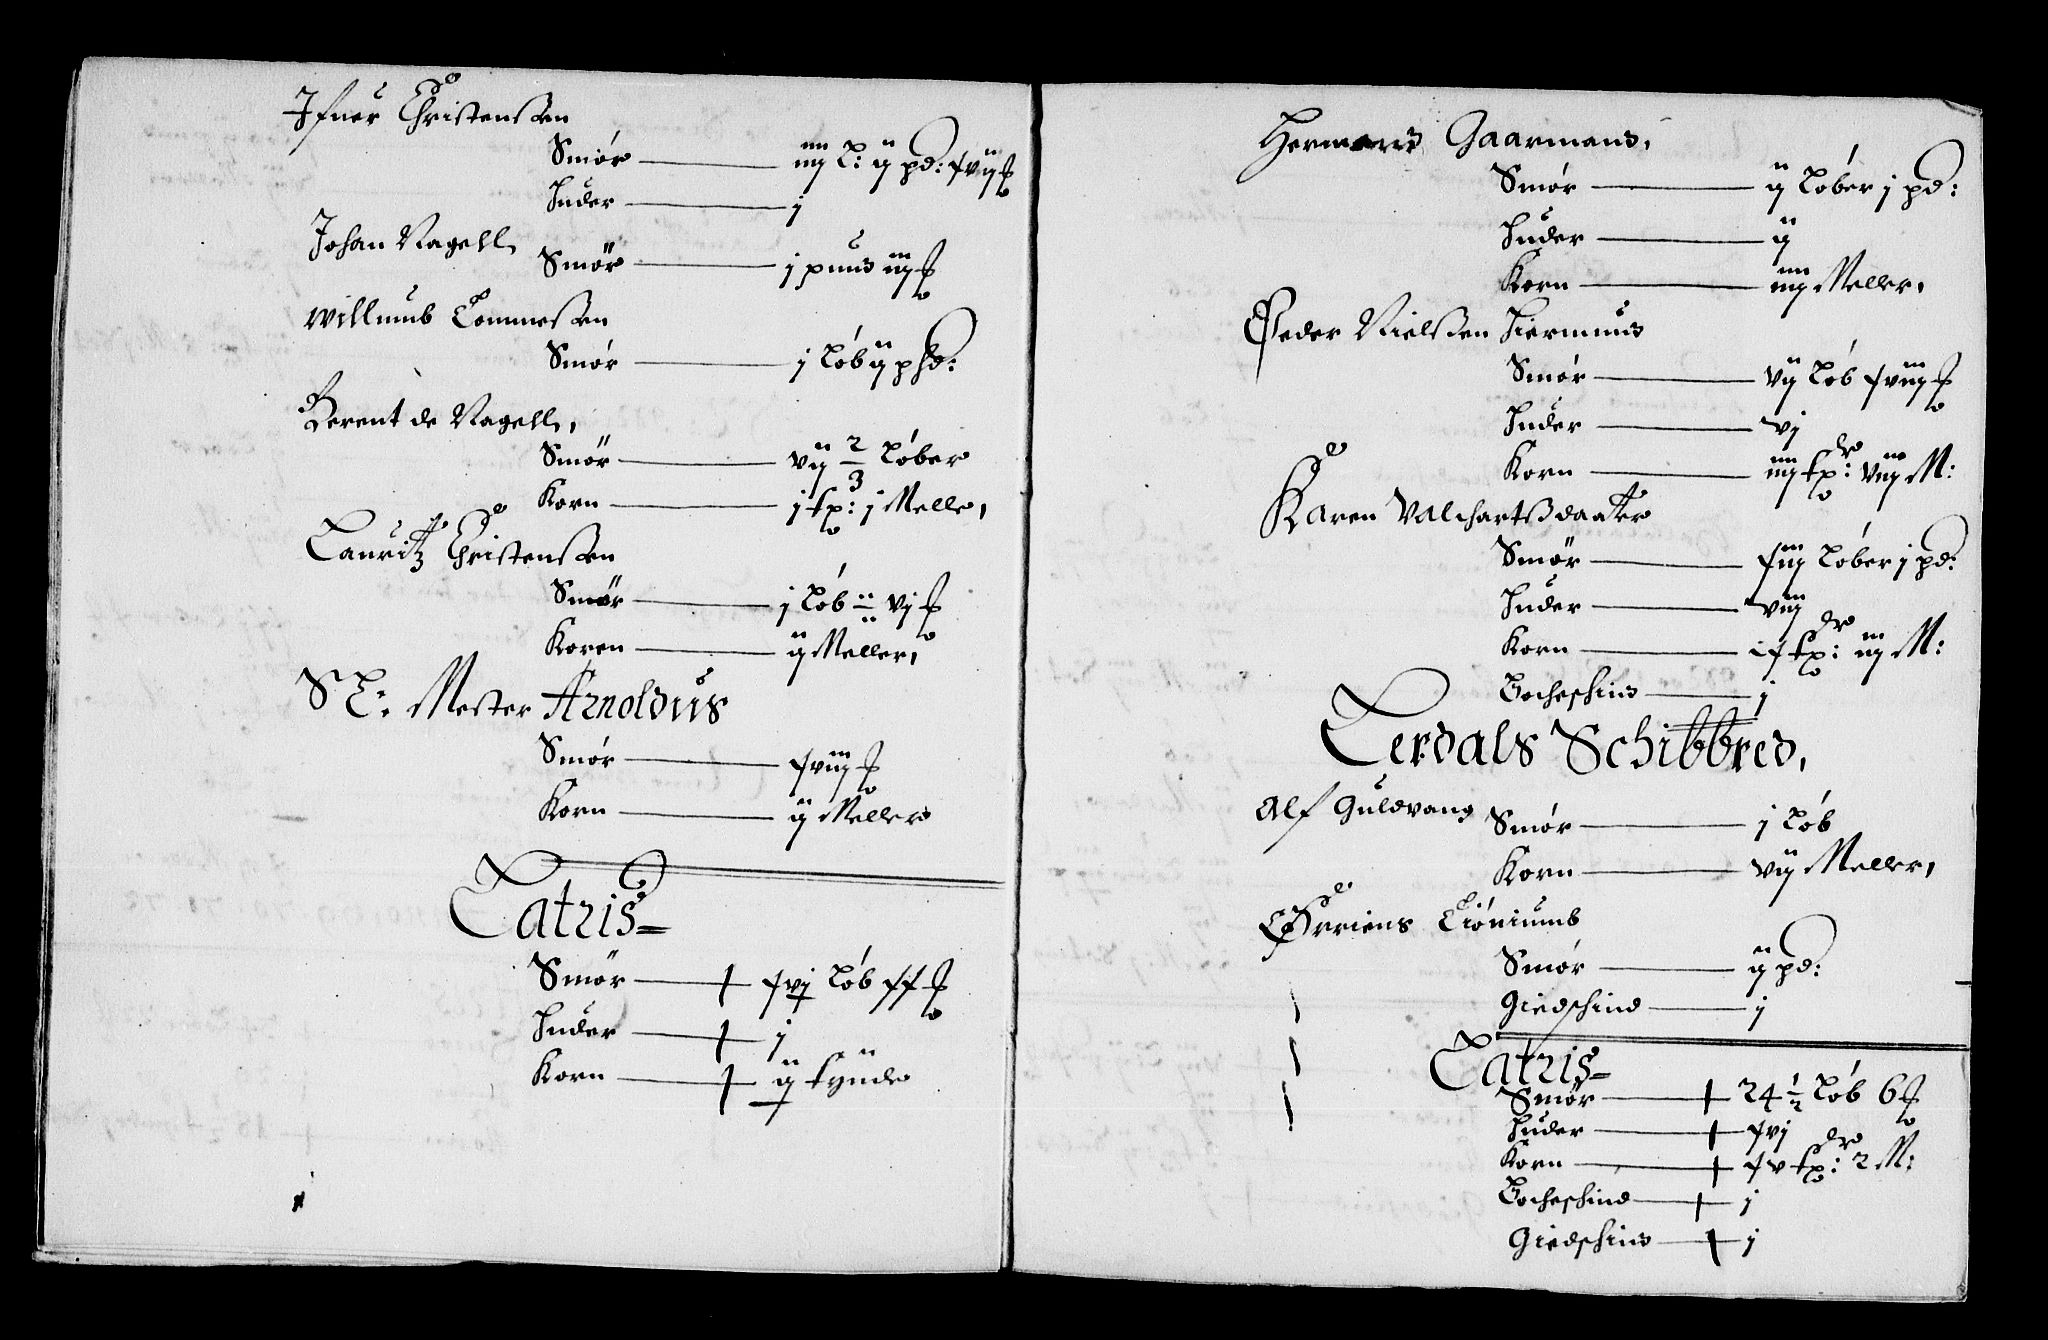 Ifuer Christensen
Smör — iiij L: ij pd: xvij ℔
Huder — j
Johan Nagell,
Smör — j pund iiij ℔
Willumb Tommesen
Smör — j Löb ij phd:
Berent de Nagell,
Smör — vij 2/3 Löber
Korn — j tp: j Melle,
Lauritz Christensen
Smör — j Löb vj ℔
Koren — ij Meller,
Sl: Mester Arnoldus
Smör — xviij ℔
Korn — ij Meller
Latris
Smör — xvj Löb xx ℔
Huder — j
Korn — ij tynde
Hermans Gaarmans,
Smör — ij Löber j pd:
Huder — ij
Korn — iiij Meller,
Peder Nielsen Hiermuns
Smör — vij Löb xviij ℔
Huder — vj
Korn — iiij tpdr: viij M:
Karen Valchartsdaater
Smör — xiij Löber j pd:
Huder — viij
Korn — ix tpdr: iij M:
Bocheschind — j
Lerdals Schibbred,
Alf Guldvang
Smör — j Löb
Korn — vij Meller,
Smör — ij pd:
Giedschind — j
Latris
Smör — 24 1/2 Löb 6 ℔
Huder — xvj
Korn — xv tpdr: 2 M:
Bocheschind — j
Giedschind — j